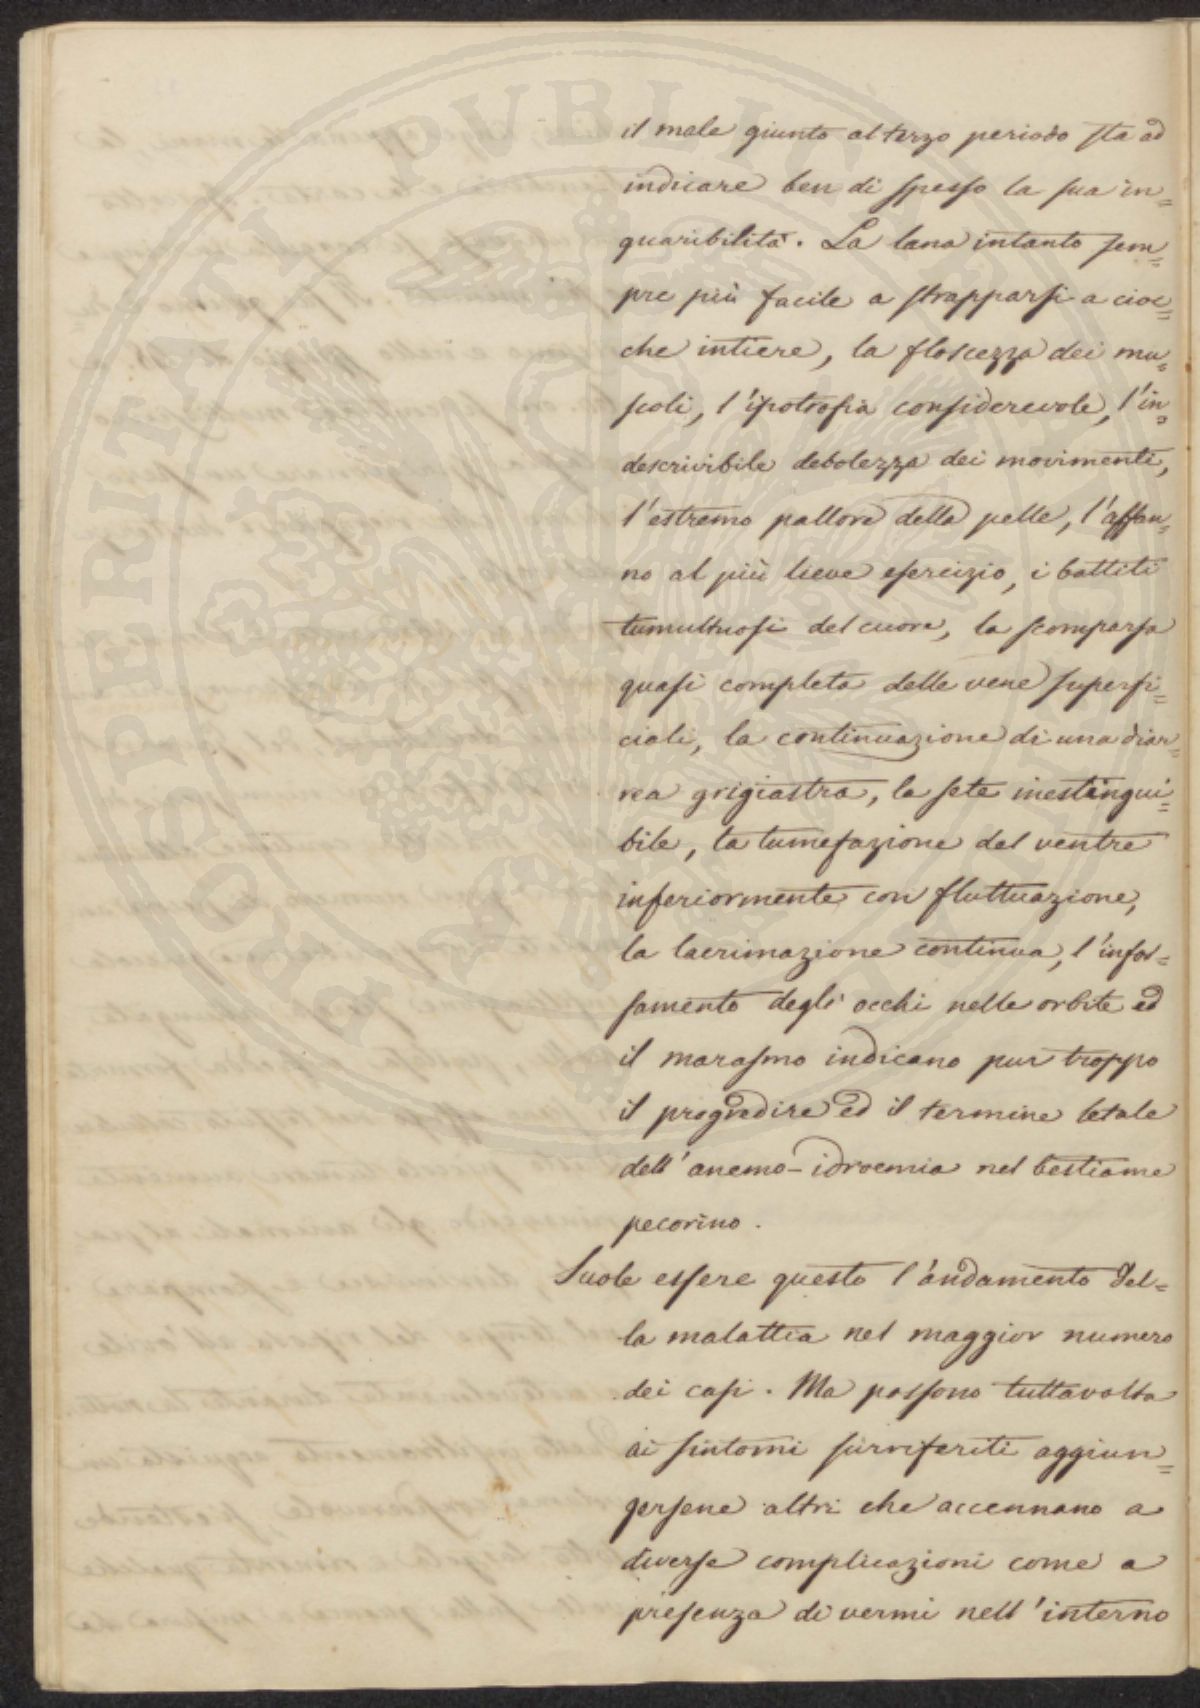 il male giunto al terzo periodo sta ad
indicare ben di spesso la sua in=
guaribilità. La lana intanto sem=
pre più facile a strapparsi a cioc=
che intiere, la floscezza dei mu=
scoli, l'ipotrofia considerevole, l'in=
descrivibile debolezza dei movimenti,
l'estremo pallore della pelle, l'affan=
no al più lieve esercizio, i battiti
tumultuosi del cuore, la scomparsa
quasi completa delle vene superfi=
ciali, la continuazione di una diar=
rea grigiastra, la sete inestingui=
bile, la tumefazione del ventre
inferiormente con fluttuazione,
la lacrimazione continua, l'infos=
samento degli occhi nelle orbite ed
il marasmo indicano pur troppo
il progredire ed il termine letale
dell'anemo-idroemia nel bestiame
pecorino.
Suole essere questo l'andamento del=
la malattia nel maggior numero
dei casi. Ma possono tuttavolta
ai sintomi surriferiti aggiun=
gersene altri che accennano a
diverse complicazioni come a
presenza di vermi nell'interno
PROSPERITATI PVBLICAE